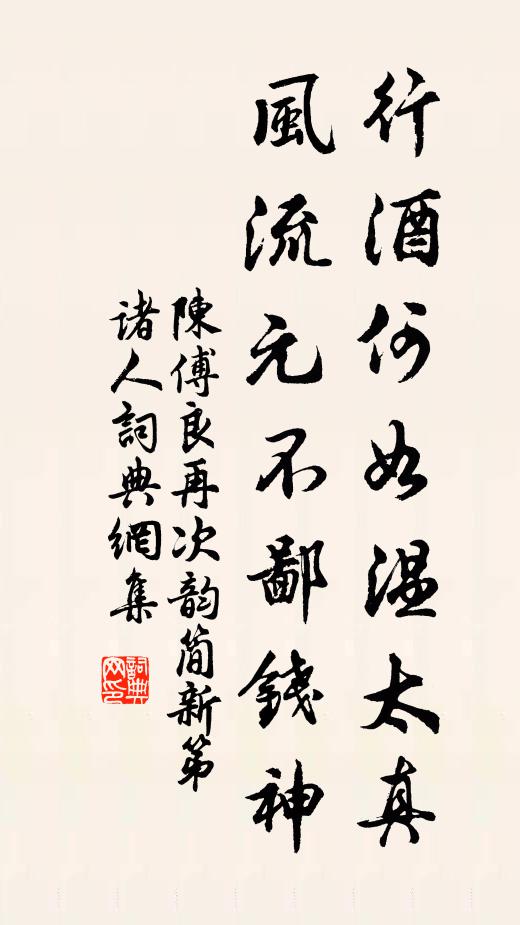 行酒何如温太真
風流元不鄙錢神
陳傅良再次韵简新第
诸人詞典網集
詞典网印